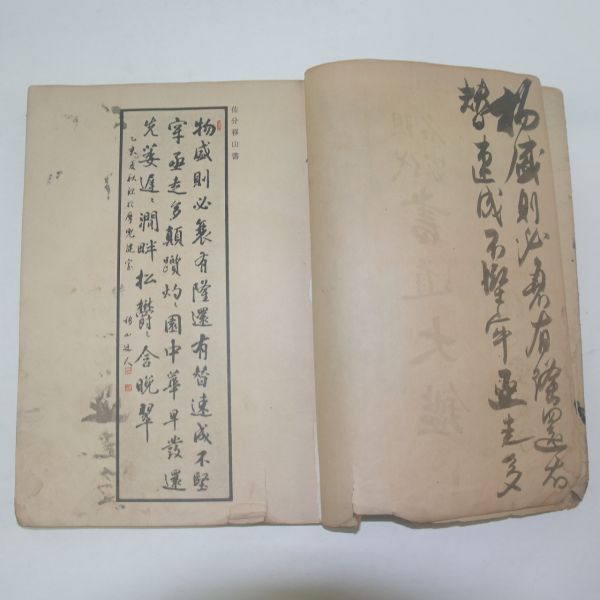 物盛則必衰有隆還有
替速成不堅牢亟走多
代書道大鑑
佐分移山書
物盛則必衰有隆還有替速成不堅
牢亟走多顛躓灼〻園中華早發還
先萎遲〻澗畔松鬱〻含晚翠
乙亥
移山人